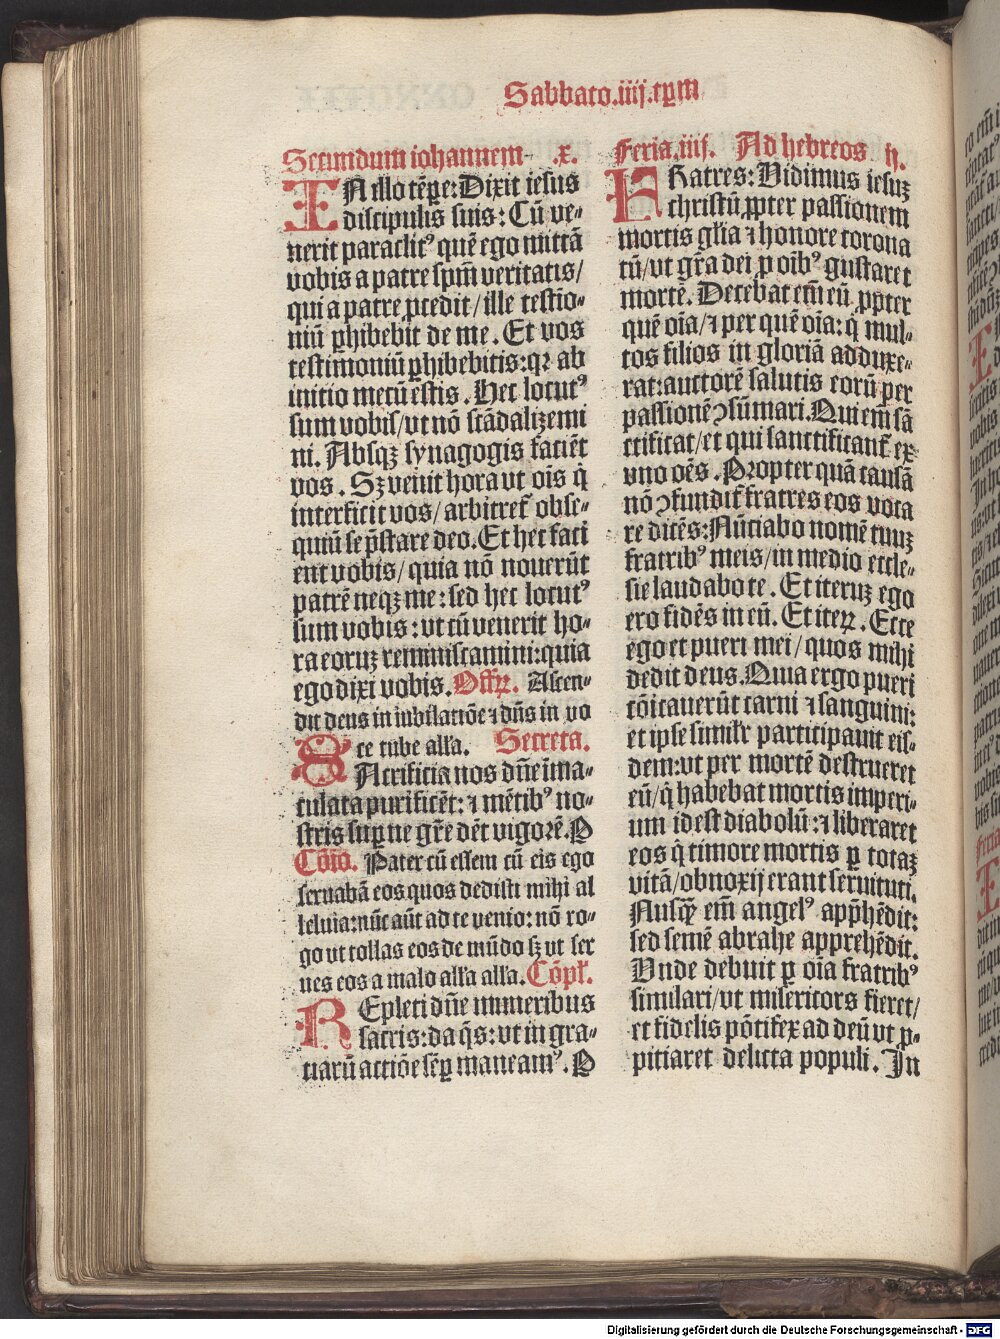 Sabbato.iiij.tp̄m
Secundum iohannem .x.
IN illo tēpe: Dixit iesus
discipulis suis: Cū ve⸗
nerit paraclitꝰ quē ego mittā
vobis a patre spm̄ veritatis/
qui a patre ꝓcedit/ ille testio⸗
niū ꝑhibebit de me. Et vos
testimoniū ꝑhibebitis: qꝛ ab
initio mecū estis. Hec locutꝰ
sum vobis/ vt nō scādalizemi
ni. Absqꝫ synagogis faciēt
vos. Sꝫ venit hora vt oīs q̇
interficit vos/ arbitret᷑ obse⸗
quiū se p̄stare deo. Et hec faci
ent vobis/ quia nō nouerūt
patrē neqꝫ me: sed hec locutꝰ
sum vobis: vt cū venerit ho⸗
ra eoruꝫ reminiscamini: quia
ego dixi vobis. Offꝝ. Ascen⸗
dit deus in iubilatiōe ⁊ dn̄s in vo
ce tube alla. Secreta.
SAcrificia nos dn̄e īma⸗
culata purificēt: ⁊ mētibꝰ no⸗
stris suꝑne gr̄e dēt vigorē. P
Cōīo. Pater cū essem cū eis ego
seruabā eos quos dedisti mihi al
leluia: nūc aūt ad te venio: nō ro⸗
go vt tollas eos de mūdo sꝫ vt ser
ues eos a malo alla alla. Cōpl᷑.
REpleti dn̄e muneribus
sacris: da q̄s: vt in gra⸗
tiarū actiōe sēꝑ maneamꝰ. P
Feria.iiij. Ad hebreos ij.
FRatres: Vidimus iesuꝫ
christū ꝓpter passionem
mortis gl̄ia ⁊ honore corona
tū/ vt gr̄a dei ꝑ oībꝰ gustaret
mortē. Decebat em̄ eū ꝓpter
quē oīa/ ⁊ per quē oīa: q̇ mul⸗
tos filios in gloriā adduxe⸗
rat: auctorē salutis eorū per
passionē ꝯsūmari. Qui em̄ sā
ctificat/ et qui sanctificant᷑ ex
vno oēs. Propter quā causā
nō ꝯfundit᷑ fratres eos voca
re dicēs: Nūciabo nomē tuuꝫ
fratribꝰ meis/ in medio eccle⸗
sie laudabo te. Et iteruꝫ ego
ero fidēs in eū. Et iteꝝ. Ecce
ego et pueri mei/ quos mihi
dedit deus. Quia ergo pueri
cōicauerūt carni ⁊ sanguini:
et ipse simil᷑r participauit eis⸗
dem: vt per mortē destrueret
eū/ q̇ habebat mortis imperi⸗
um id est diabolū: ⁊ liberaret
eos q̇ timore mortis ꝑ totaꝫ
vitā/ obnoxij erant seruituti.
Nusꝙ̄ em̄ angelꝰ app̄hēdit:
sed semē abrahe apprehēdit.
Vnde debuit ꝑ oīa fratribꝰ
similari/ vt misericors fieret/
et fidelis pōtifex ad deū vt ꝓ⸗
pitiaret delicta populi. In
Digitalisierung gefördert durch die Deutsche Forschungsgemeinschaft - DFG